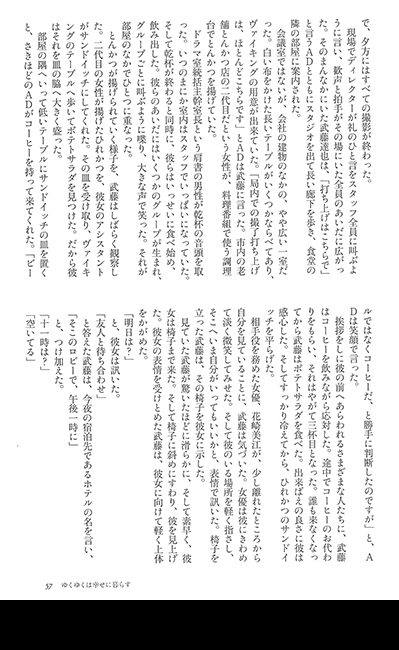 で、夕方にはすべての撮影が終わった。
　現場でディレクターが礼のひと言をスタッフ全員に叫ぶよ
うに言い、歓声と拍手がその場にいた全員のあいだに広がっ
た。そのまんなかにいた武藤達也は、「打ち上げはこちらで」
と言うADとともにスタジオを出て長い廊下を歩き、食堂の
隣の部屋に案内された。
　会議室ではないが、会社の建物のなかの、やや広い一室だ
った。白い布をかけた長いテーブルがいくつかならべてあり、
ヴァイキングの用意が出来ていた。「局内での撮了打ち上げ
は、ほとんどこちらです」とADは武藤に言った。市内の老
舗とんかつ店の二代目だという女性が、料理番組で使う調理
台でとんかつを揚げていた。
　ドラマ室統括主幹室長という肩書の男性が乾杯の音頭を取
った。いつのまにか室内はスタッフでいっぱいになっていた。
そして乾杯が終わると同時に、彼らはいっせいに食べ始め、
飲み出した。彼らのあいだにはいくつかのグループが生まれ、
グループごとに叫ぶように喋り、大きな声で笑った。それが
部屋のなかでひとつに重なった。
　とんかつが揚げられていく様子を、武藤はしばらく観察し
た。二代目の女性が揚げたひれかつを、彼女のアシスタント
がサンドイッチにしてくれた。その皿を受け取り、ヴァイキ
ングのテーブルへ歩いてポテトサラダを見つけた。だから彼
はそれを皿の脇へ大きく盛った。
　部屋の隅へいって低いテーブルにサンドイッチの皿を置く
と、さきほどのADがコーヒーを持って来てくれた。「ビー
ルではなくコーヒーだ、と勝手に判断したのですが」と、A
Dは笑顔で言った。
　挨拶をしに彼の前へあらわれるさまざまな人たちに、武藤
はコーヒーを飲みながら応対した。途中でコーヒーのお代わ
りをもらい、それはやがて三杯目となった。誰も来なくなっ
てから武藤はポテトサラダを食べた。出来ばえの良さに彼は
感心した。そしてすっかり冷えてから、ひれかつのサンドイ
ッチを平らげた。
　相手役を務めた女優、花崎美江が、少し離れたところから
自分を見ていることに、武藤は気づいた。女優は彼にきわめ
て淡く微笑してみせた。そして彼のいる場所を軽く指さし、
そこへいま自分がいってもいいかと、表情で訊いた。椅子を
立った武藤は、その椅子を彼女に示した。
　見ていた武藤が驚いたほどに滑らかに、そして素早く、彼
女は椅子まで来た。そして椅子に斜めにすわり、彼を見上げ
た。彼女の表情を受けとめた武藤は、彼女に向けて軽く上体
をかがめた。
「明日は?」
と、彼女は訊いた。
「友人と待ち合わせ」
と答えた武藤は、今夜の宿泊先であるホテルの名を言い、
「そこのロビーで、午後一時に」
と、つけ加えた。
「十一時は?」
「空いてる」
57　ゆくゆくは幸せに暮らす